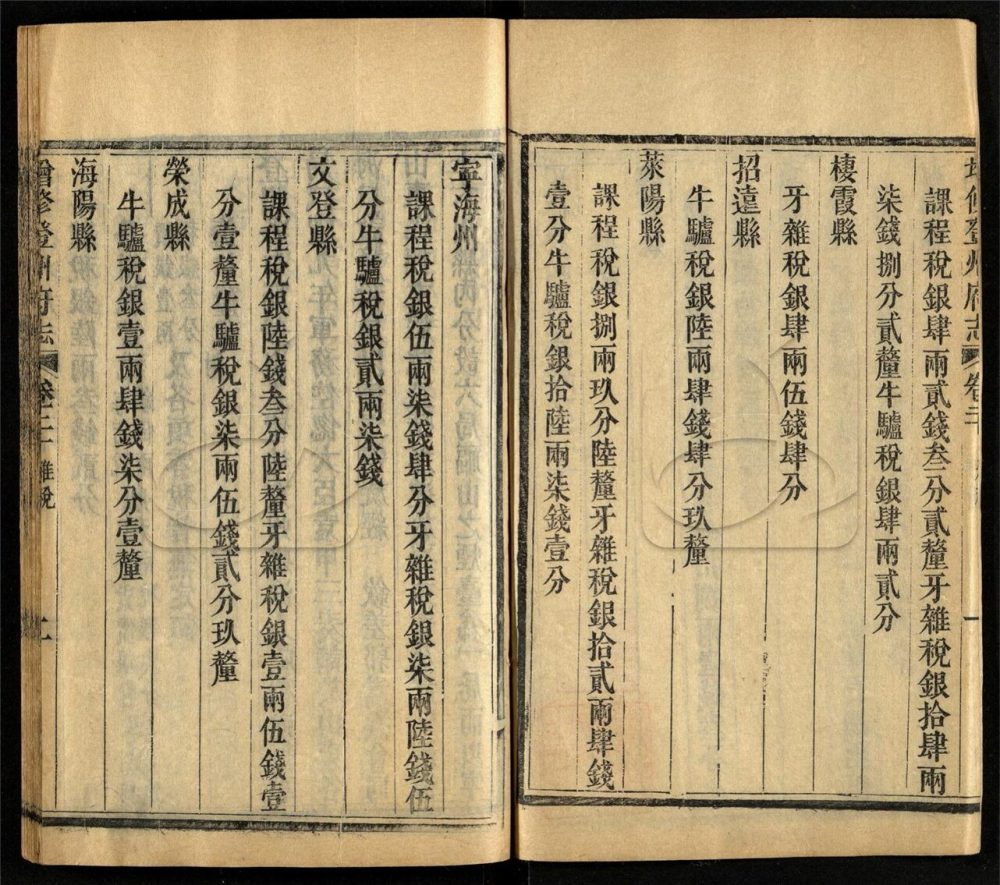 增修登州府志 卷二十 一
課程稅銀肆兩貳錢叁分貳釐牙雜稅銀拾肆兩
柒錢捌分貳釐牛驢稅銀肆兩貳分
棲霞縣
牙雜稅銀肆兩伍錢肆分
招遠縣
牛驢稅銀陸兩肆錢肆分玖釐
萊陽縣
課程稅銀捌兩玖分陸釐牙雜稅銀拾貳兩肆錢
壹分牛驢稅銀拾陸兩柒錢壹分
寧海州
課程稅銀伍兩柒錢肆分牙雜稅銀柒兩陸錢伍
分牛驢稅銀貳兩柒錢
文登縣
課程稅銀陸錢叁分陸釐牙雜稅銀壹兩伍錢壹
分壹釐牛驢稅銀柒兩伍錢貳分玖釐
榮成縣
牛驢稅銀壹兩肆錢柒分壹釐
海陽縣
增修登州府志 卷二十 雜稅 二